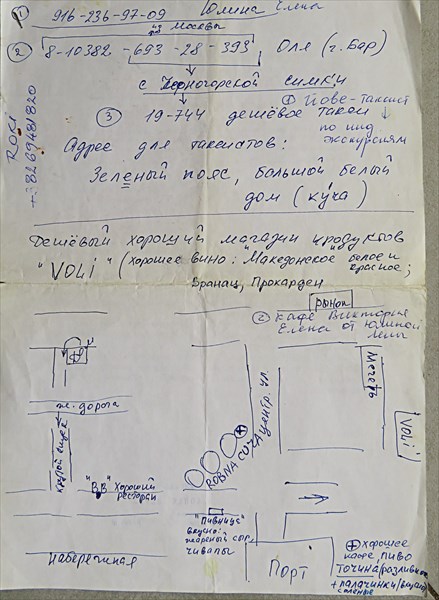 ① 916-236-97-09 Юлина Елена
из Москвы
② 8-10382-693-28-393, Оля (г. Бар)
с Черногорской симки
① Йове-таксист
③ 19-744 дешёвое такси
по инд. экскурсиям
Адрес для таксистов:
Зеленый пояс, большой белый
дом (куча)
ROKI
+38269481820
Дешёвый хороший магазин продуктов
"VOLI" (хорошее вино: Македонское белое и
красное;
Вранац, Прокардец
рынок
② кафе Виктория
Елена от Юлиной
Лены
Мечеть
Voli
ж. дорога
крутой спуск
"ВВ" Хороший
ресторан
ROBNA CUZA
центр. ул.
"ПИВНИЦА"
вкусно:
жареный сыр,
чивапы
Набережная
Порт
⊕ хорошее
кафе пиво
Точина/разливное
+ палачинки/
соленые